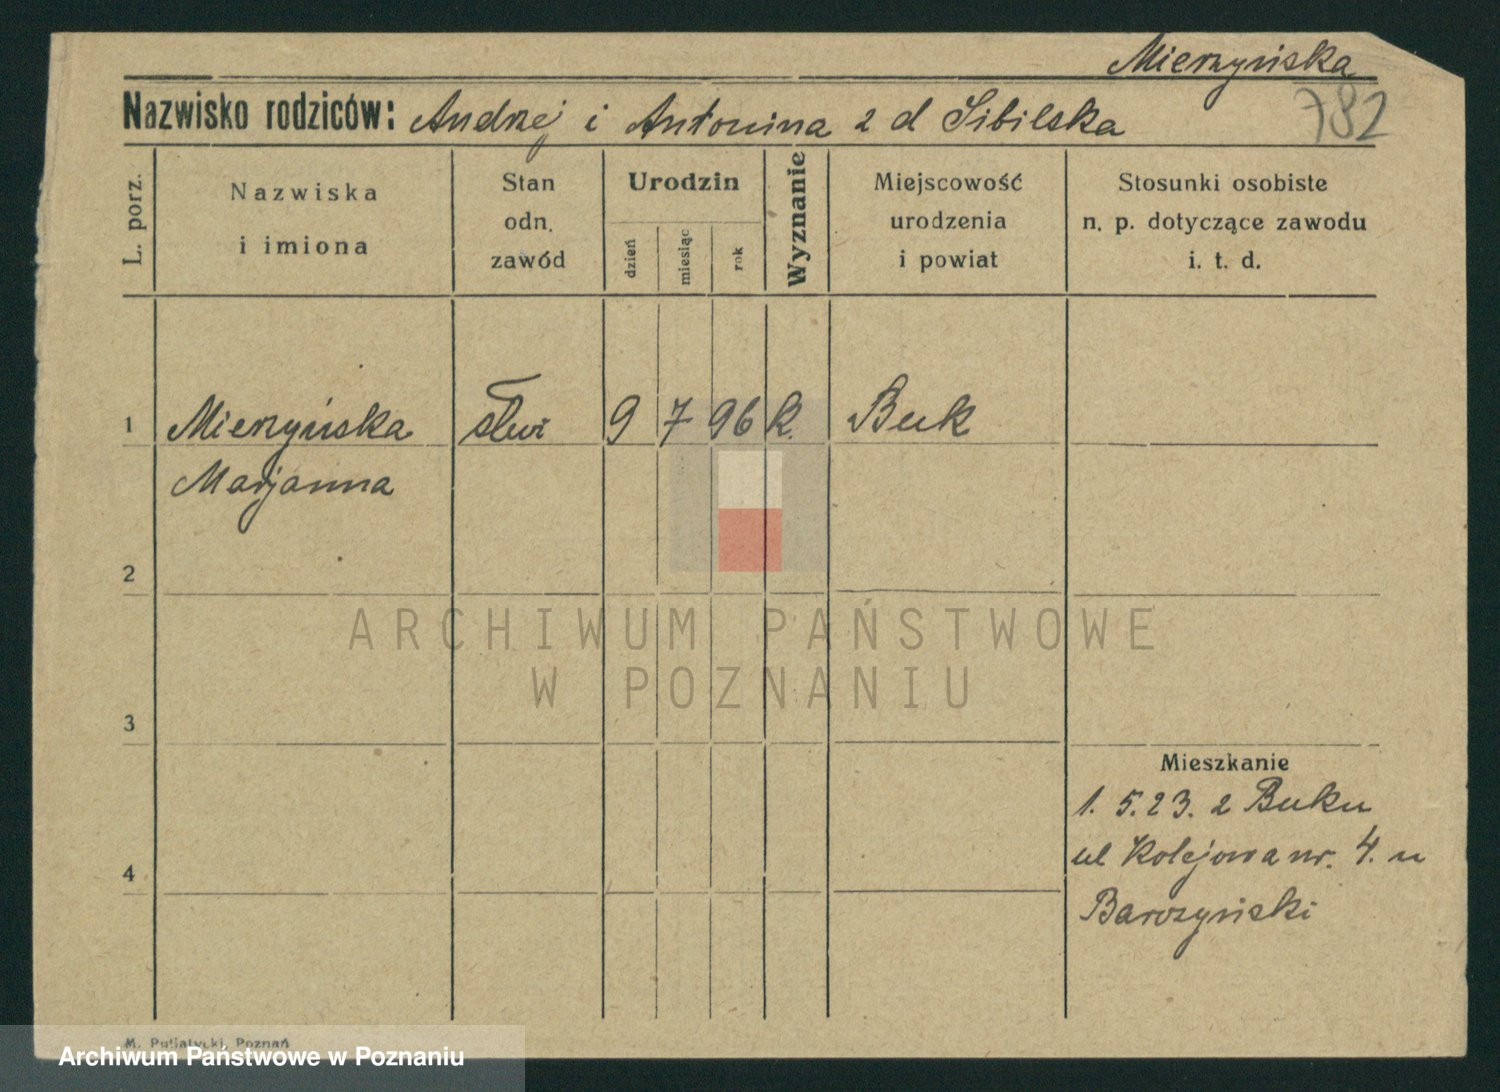 Mierzyńska
Nazwisko rodziców: Andrzej i Antonina z d Sibilska
782
L. porz.
Nazwiska
i imiona
Stan
odn.
zawód
Urodzin
dzień
miesiąc
rok
Wyznanie
Miejscowość
urodzenia
i powiat
Stosunki osobiste
n. p. dotyczące zawodu
i. t. d.
1 Mierzyńska 9 7 96 k. Buk
Marjanna
2
ARCHIWUM PAŃSTWOWE
W POZNANIU
3
Mieszkanie
1. 5.23. z Buku
ul Kolejowa nr. 4. u
4
Barczyński
M. Putiatycki, Poznań
Archiwum Państwowe w Poznaniu